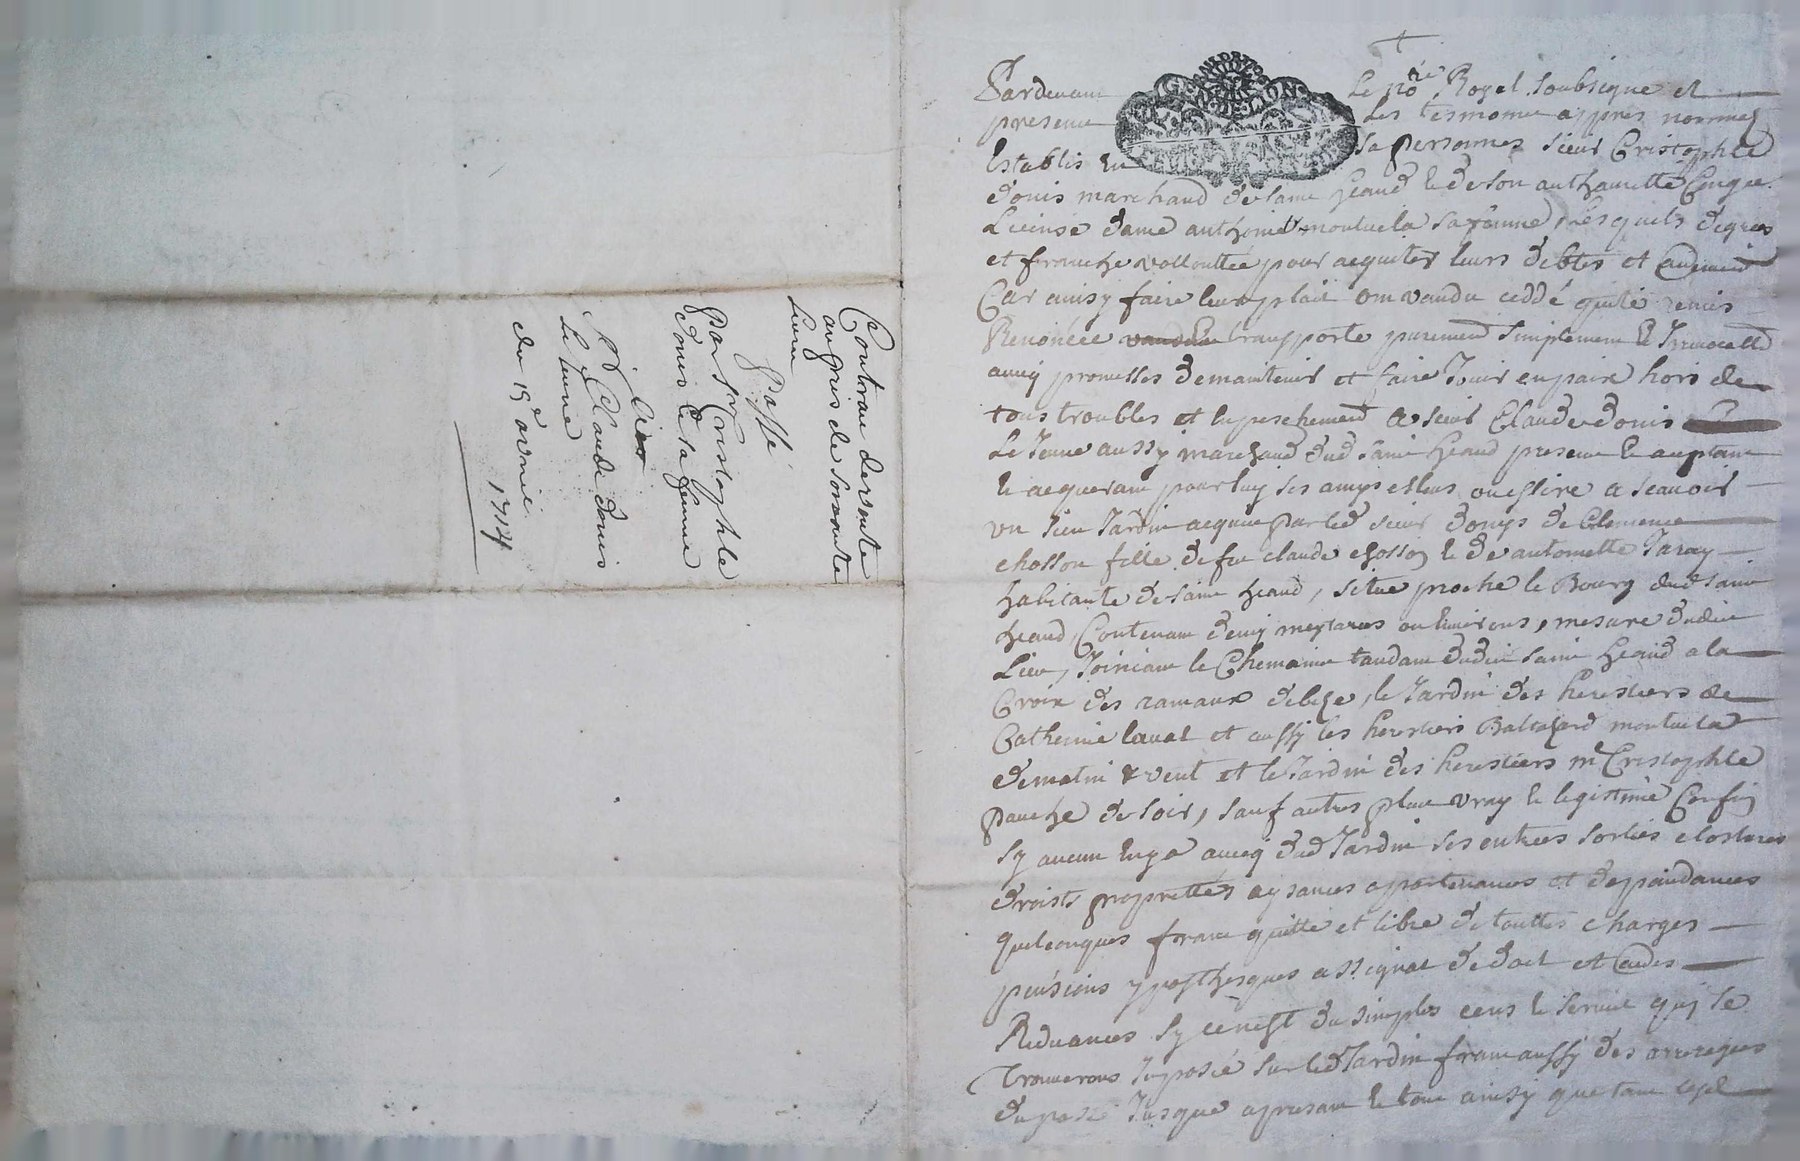 Contrau de vante
au prix de soixante
Livres
Passé
Par Sr Cristophle
donis & sa femme
A Sr Claude donis
Le Jeune
du 15e avril
1714
Pardevant Le No.re Royal Soubsigne et
presence Les tesmoins appres nommes
Establis en sa personnes sieur Cristophle
donis marchand de saint heand & de son authorittè
Licensé dame anthoinette montuela sa famme, Lesquels de grees
et franche vollonttée pour acquiter leurs debtes et
Car ainsy faire leur plait ont vandu ceddé quité remis
Renoncée transporte purement simplement & Irrevocable
avecq promesses de maintenir et faire Jouir en paix hors de
tous troubles et enpeschement a sieur Claude donis
Le Jeune aussy marchand dud saint heand present & aceptant
& acquerant pour luy ses amys eslus ou eslire a scauoir
un sien Jardin acquis par led sieur donys de Clemence
chosson fille de feu claude chosson & de antoinette Jaray
habitante de saint heand, situé proche le Bourg dud saint
heand, Contenant mesure dudit
Lieu, Joinant le Chemain tandant dudit saint heand a la
Croix des ramaux de bize, le Jardin des heresties de
Catherine laval et aussy les herestiers Baltazard montuela
de matin & vent et le Jardin des herestiers m Cristophle
de soir, sauf autres plus vray & legistime Confin
sy aucun en y a avecq dud Jardin ses entrees sorties closteres
droists proprettes aysances apartenances et depandances
quelconques franc quitte et libre de touttes charges
pensions ypostheques assignat de dost et autres
Reduances sy ce n'est du simples cens & servis quy se
trouverons Inposée sur led Jardin franc aussy des arrerages
du passé Jusque apresant & tout ainsy que tant led